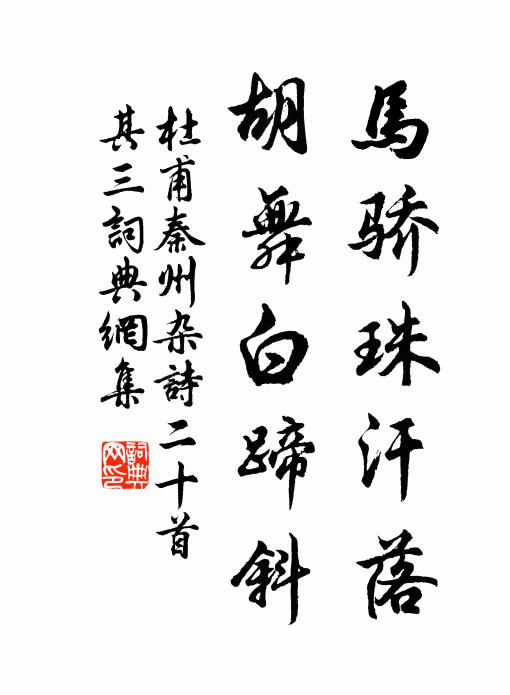 馬骄珠汗落
胡舞白蹄斜
杜甫秦州杂詩二十首
其三詞典網集
詞典网印